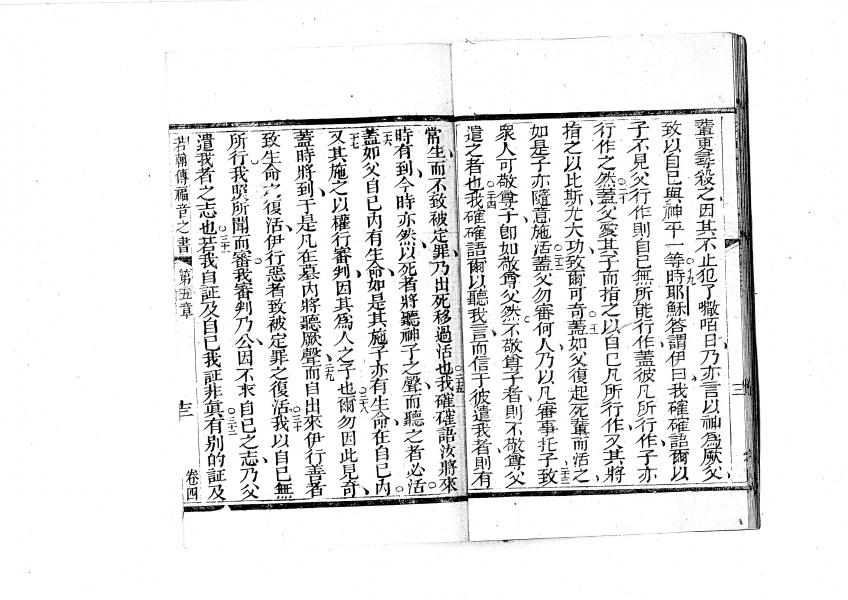 輩更尋殺之因其不止犯了𠹌咟日乃亦言以神為厥父
致以自己與神平一等時耶穌答謂伊曰我確確語爾以
子不見父行作則自己無所能行作蓋彼凡所行作子亦
行作之然蓋父愛其子而指之以自己凡所行作又其將
指之以比斯尤大功致爾可奇蓋如父復起死輩而活之
如是子亦隨意施活蓋父勿審何人乃以凡審事托子致
衆人可敬尊子卽如敬尊父然不敬尊子者則不敬尊父
遣之者也我確確語爾以聽我言而信于彼遣我者則有
常生而不致被定罪乃出死移過活也我確確語汝將來
時有到今時亦然以死者將聽神子之聲而聽之者必活
蓋如父自己內有生命如是其施子亦有生命在自己內
又其施之以權行審判因其為人之子也爾勿因此見奇
蓋時將到于是凡在墓內將聽厥聲而自出來伊行善者
致生命之復活伊行惡者致被定罪之復活我以自己無
所行我照所聞而審我審判乃公因不求自己之志乃父
遣我者之志也若我自証及自己我証非眞有別的証及
若翰傳福音之書 第五章 十三 卷四